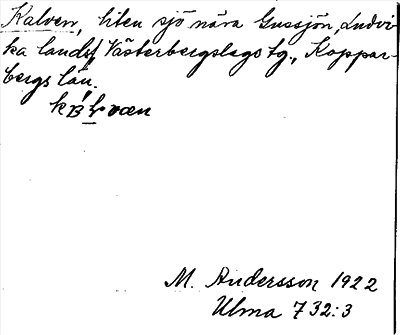 Kalven, liten sjö nära Gussjön, Ludvi-
ka landsf Västerbergslags tg., Koppar-
bergs län.
M. Andersson 1922
Ulma 732:3